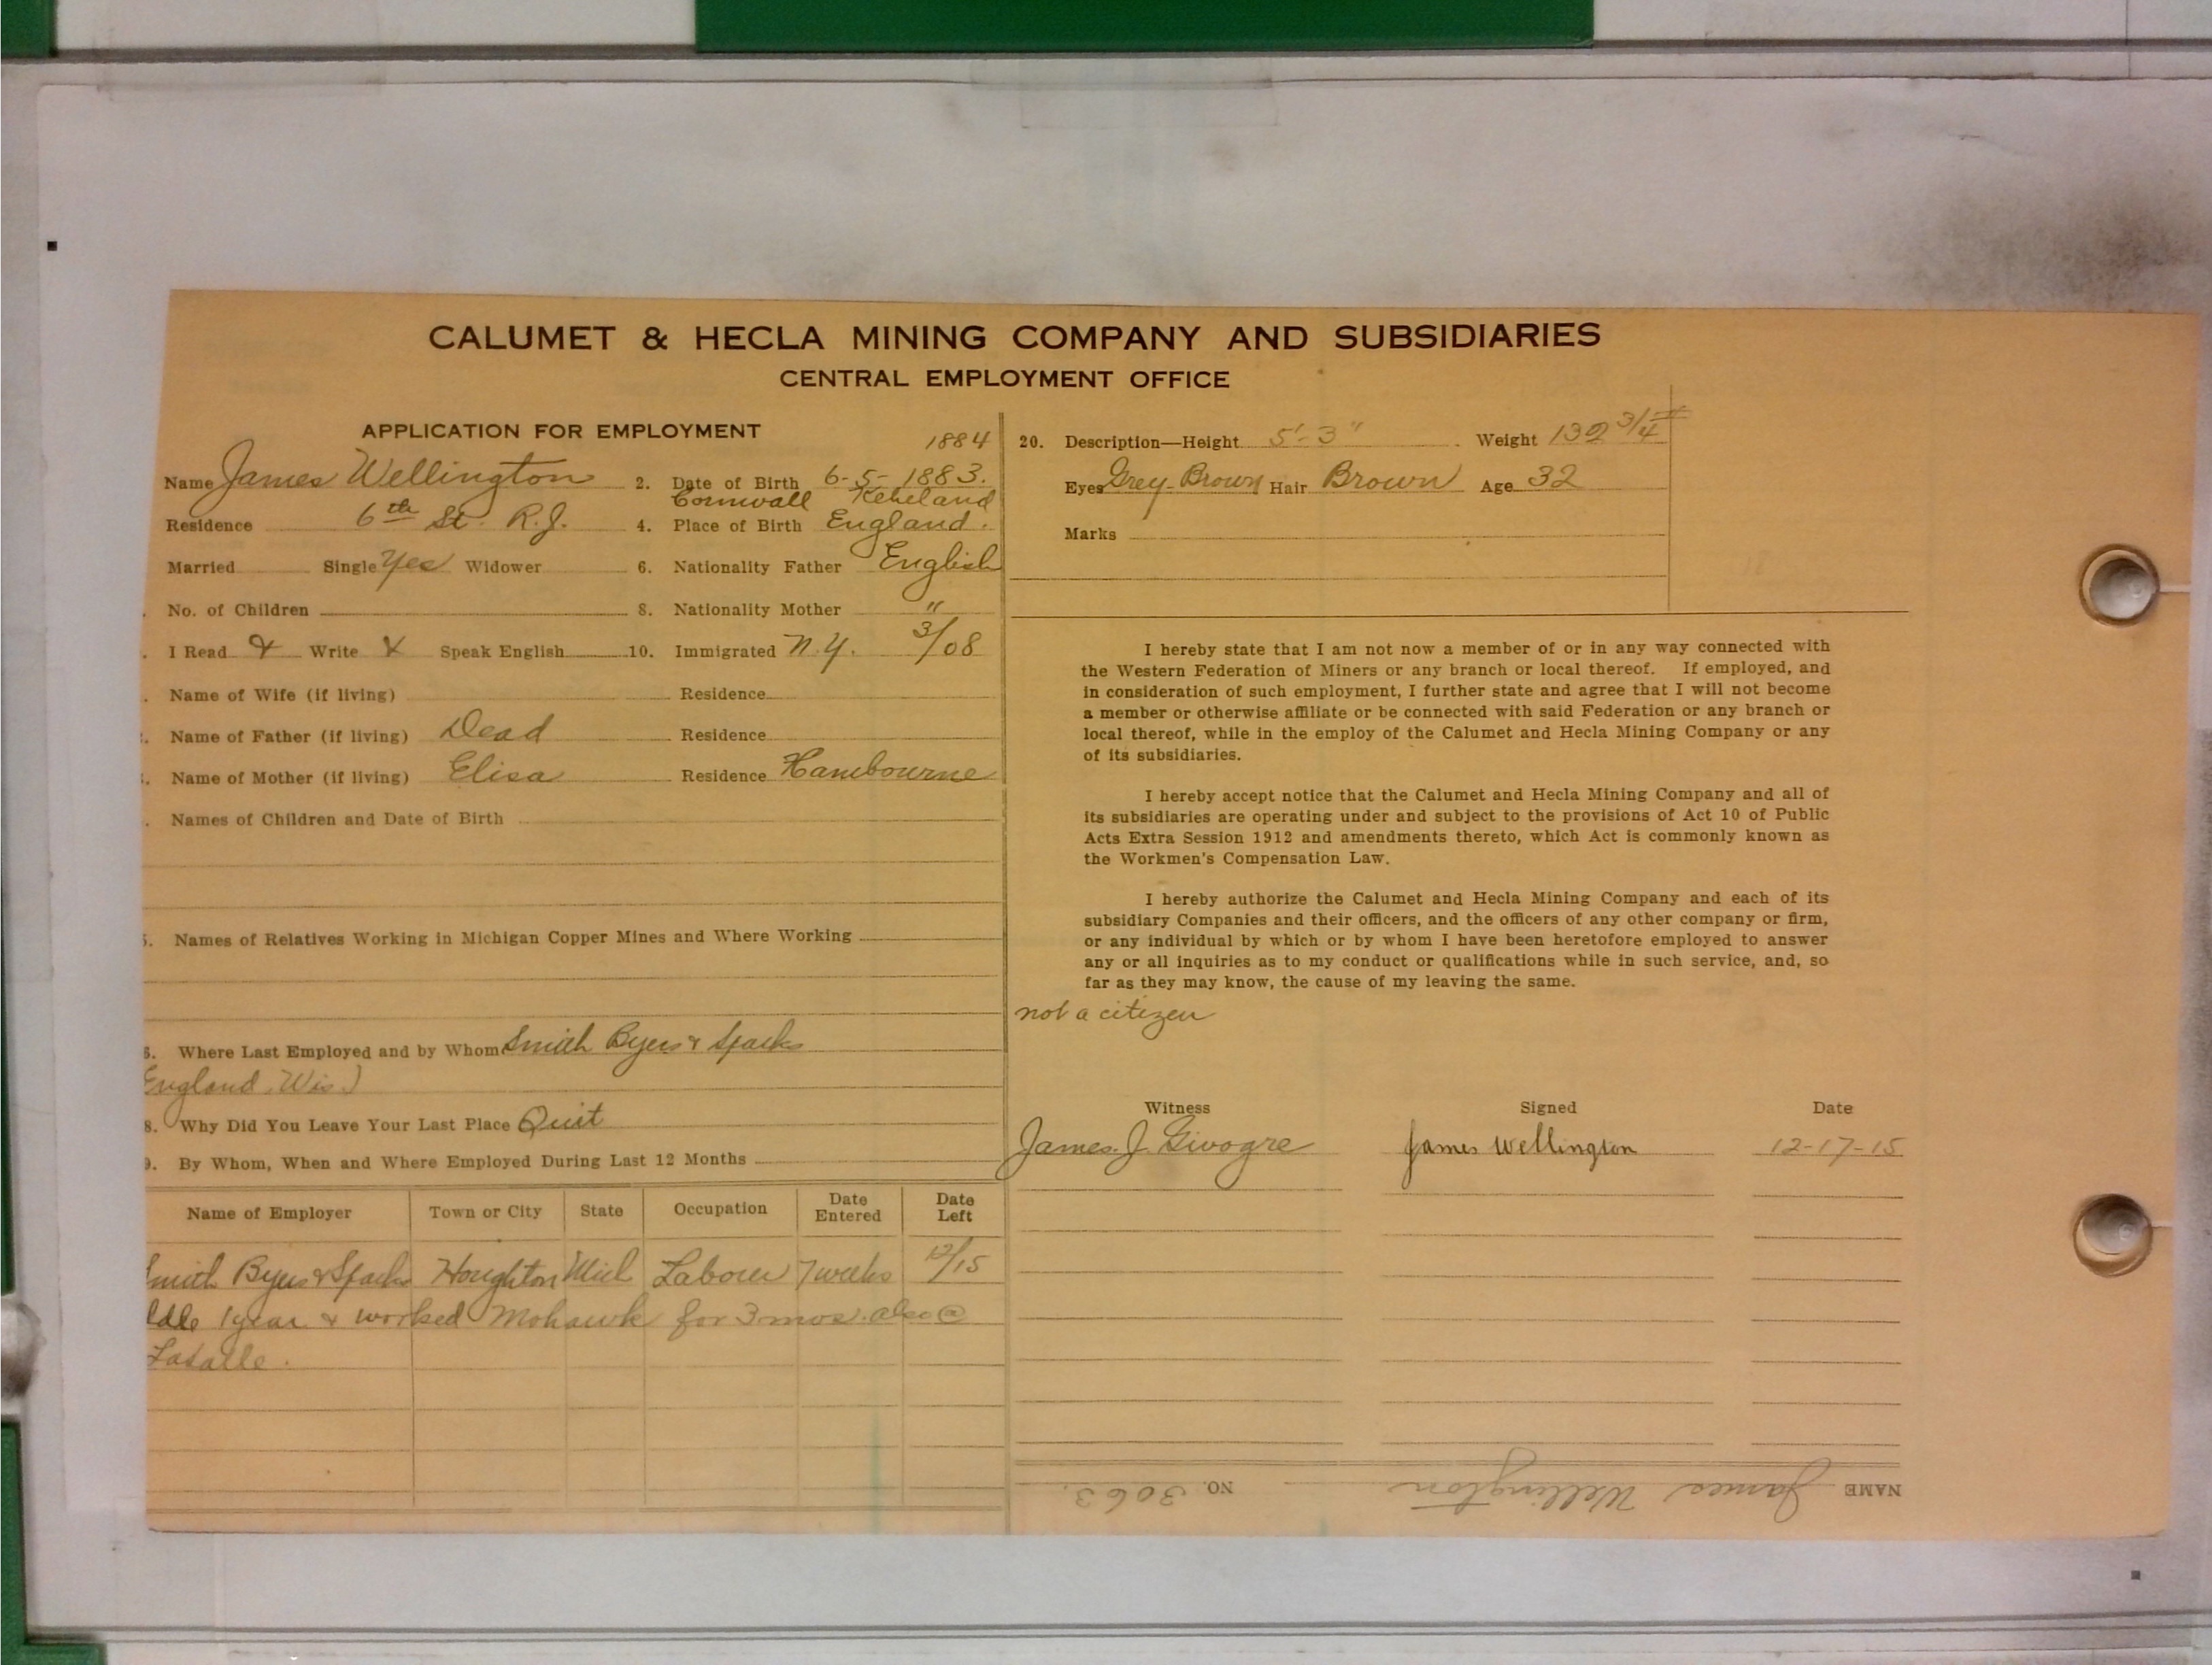 CALUMET & HECLA MINING COMPANY AND SUBSIDIARIES
CENTRAL EMPLOYMENT OFFICE
APPLICATION FOR EMPLOYMENT
1884
Name James Wellington 2. Date of Birth 6-5-1883.
Cornwall Keheland
Residence 6th St. R.J. 4. Place of Birth England.
Married Single Yes Widower 6. Nationality Father English
No. of Children 8. Nationality Mother "
I Read X Write X Speak English 10. Immigrated N.Y. 3/08
Name of Wife (if living) Residence
Name of Father (if living) Dead Residence
Name of Mother (if living) Elisa Residence
Names of Children and Date of Birth
Names of Relatives Working in Michigan Copper Mines and Where Working
Where Last Employed and by Whom Smith Byers & Sparks
England Wis.)
8. Why Did You Leave Your Last Place Quit
9. By Whom, When and Where Employed During Last 12 Months
Name of Employer Town or City State Occupation Date Entered Date Left
Smith Byers & Sparks Houghton Mich Laborer 7 weeks 12/15
Idle 1 year & worked Mohawk for 3 mos. also @
LaSalle.
20. Description—Height 5'-3" Weight 132 3/4 #
Eyes Grey-Brown Hair Brown Age 32
Marks
I hereby state that I am not now a member of or in any way connected with
the Western Federation of Miners or any branch or local thereof. If employed, and
in consideration of such employment, I further state and agree that I will not become
a member or otherwise affiliate or be connected with said Federation or any branch or
local thereof, while in the employ of the Calumet and Hecla Mining Company or any
of its subsidiaries.
I hereby accept notice that the Calumet and Hecla Mining Company and all of
its subsidiaries are operating under and subject to the provisions of Act 10 of Public
Acts Extra Session 1912 and amendments thereto, which Act is commonly known as
the Workmen's Compensation Law.
I hereby authorize the Calumet and Hecla Mining Company and each of its
subsidiary Companies and their officers, and the officers of any other company or firm,
or any individual by which or by whom I have been heretofore employed to answer
any or all inquiries as to my conduct or qualifications while in such service, and, so
far as they may know, the cause of my leaving the same.
not a citizen
Witness Signed Date
James. J. Givogre James Wellington 12-17-15
NAME James Wellington NO. 3063.